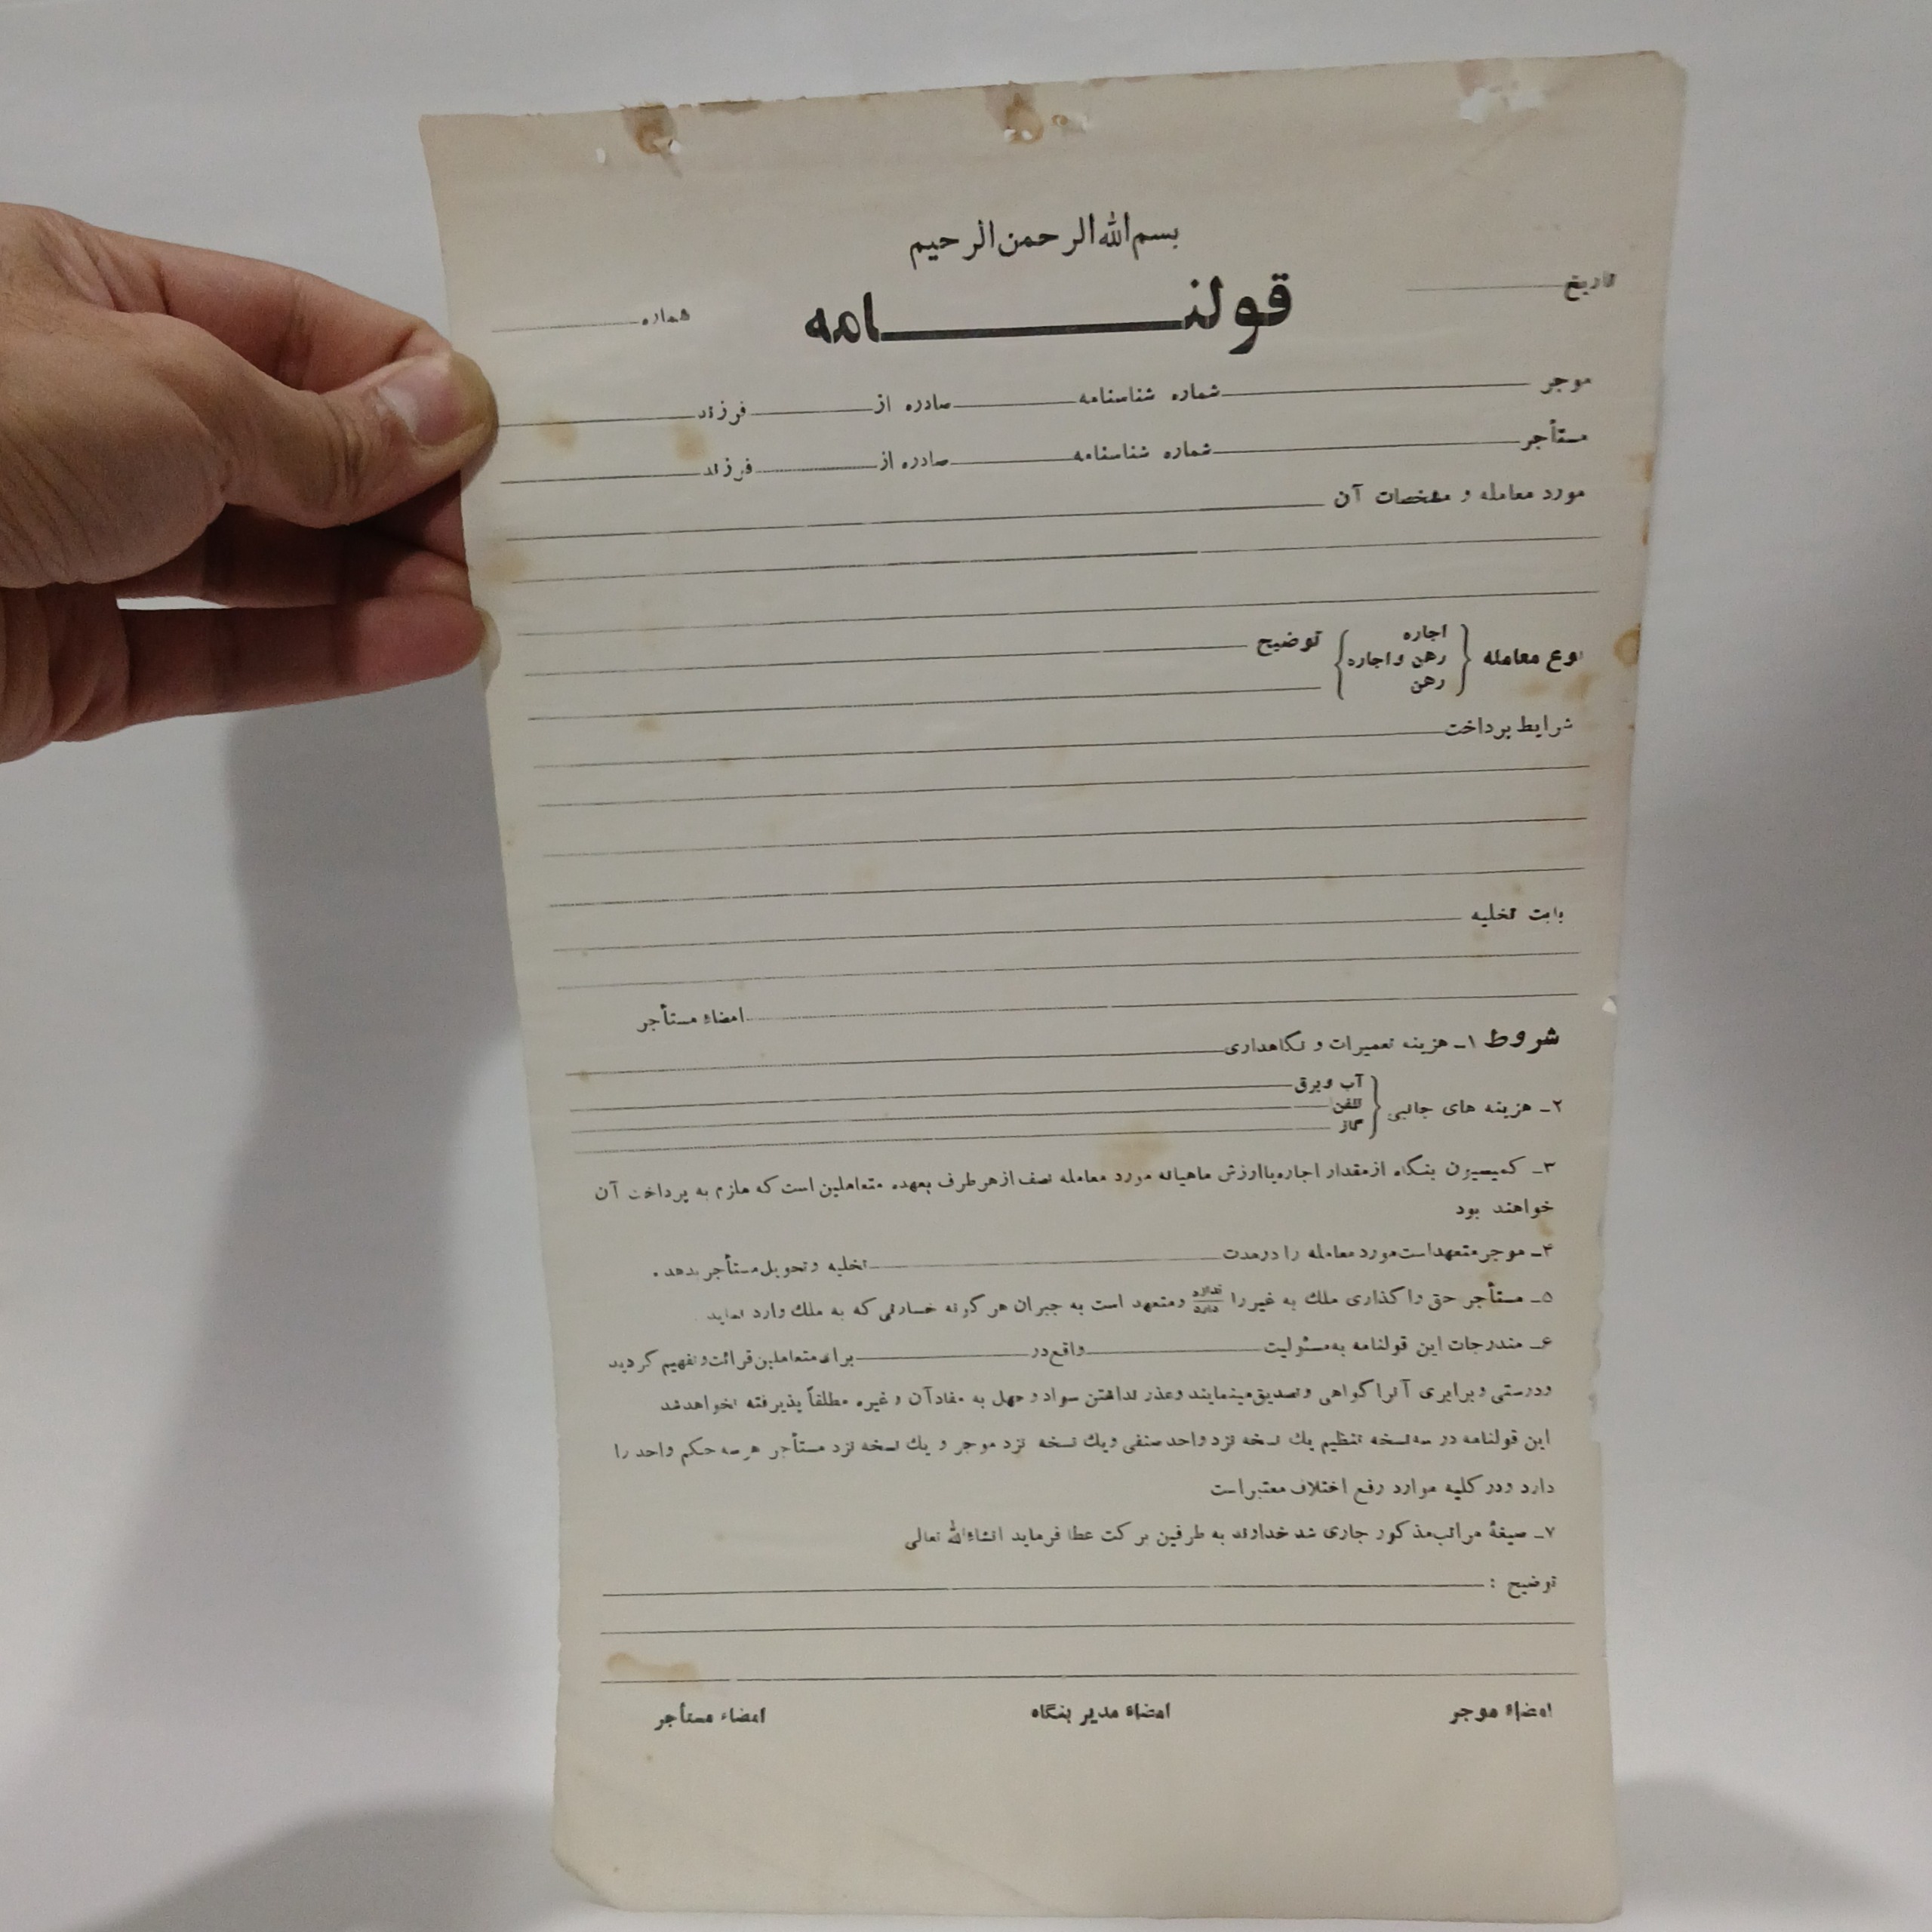 بسم‌الله‌الرحمن‌الرحیم
تاریخ
قولنـــــــامه
شماره
موجر ــــ شماره شناسنامه ــــ صادره از ــــ فرزند ــــ
مستأجر ــــ شماره شناسنامه ــــ صادره از ــــ فرزند ــــ
مورد معامله و مشخصات آن
نوع معامله { اجاره
رهن و اجاره
رهن } توضیح
شرایط پرداخت
بابت تخلیه
امضاء مستأجر
شروط ۱ـ هزینه تعمیرات و نگاهداری
۲ـ هزینه های جانبی { آب و برق
تلفن
گاز
۳ـ کمیسیون بنگاه از مقدار اجاره یا ارزش ماهیانه مورد معامله نصف از هر طرف بعهده متعاملین است که ملزم به پرداخت آن
خواهند بود
۴ـ موجر متعهد است مورد معامله را در مدت ــــ تخلیه و تحویل مستأجر بدهد .
۵ـ مستأجر حق واگذاری ملك به غیر را ندارد / دارد و متعهد است به جبران هر گونه خسارتی که به ملك وارد نماید
۶ـ مندرجات این قولنامه به مسئولیت ــــ واقع در ــــ برای متعاملین قرائت و تفهیم گردید
و درستی و برابری آنرا گواهی و تصدیق مینمایند و عذر نداشتن سواد و جهل به مفاد آن و غیره مطلقاً پذیرفته نخواهد شد
این قولنامه در سه نسخه تنظیم یك نسخه نزد واحد صنفی و یك نسخه نزد موجر و یك نسخه نزد مستأجر هر سه حکم واحد را
دارد و در کلیه موارد رفع اختلاف معتبر است
۷ـ صیغهٔ مراتب مذکور جاری شد خداوند به طرفین برکت عطا فرماید انشاءالله تعالی
توضیح :
امضاء موجر
امضاء مدیر بنگاه
امضاء مستأجر